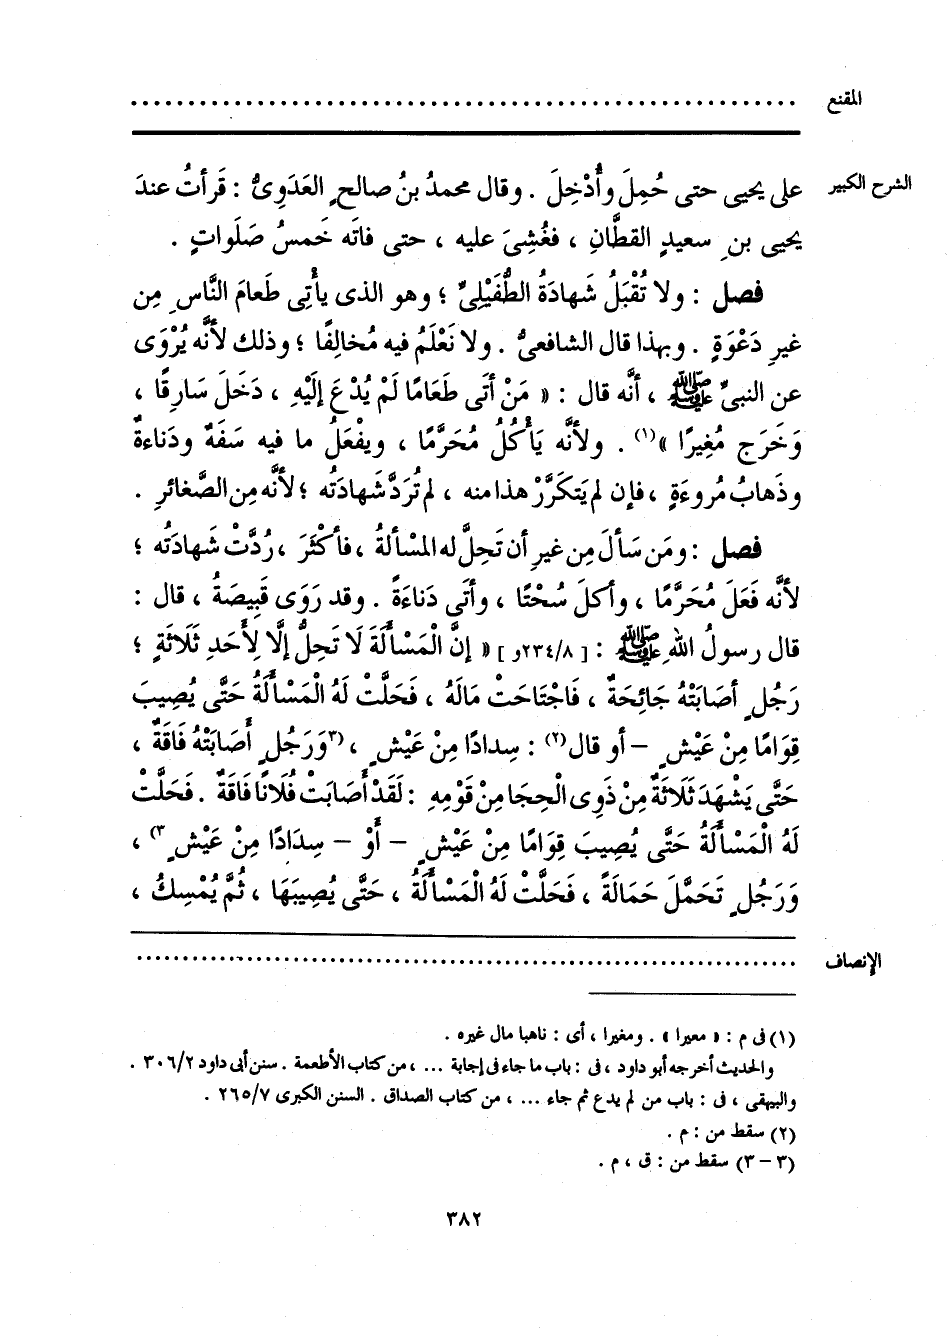 المقنع ..........................................................
الشرح الكبير على يحيى حتى حُمِلَ وأُدْخِلَ . وقال محمدُ بنُ صالحٍ العَدَوِىُّ : قَرأتُ عندَ
يحيى بنِ سعيدٍ القطَّانِ ، فغُشِىَ عليه ، حتى فاتَه خَمسُ صَلَواتٍ .
فصل : ولا تُقْبَلُ شَهادَةُ الطُّفَيْلِىِّ ؛ وهو الذى يأْتِى طَعامَ النَّاسِ مِن
غيرِ دَعْوَةٍ . وبهذا قال الشافعىُّ . ولا نَعْلَمُ فيه مُخالِفًا ؛ وذلك لأنَّه يُرْوَى
عن النبىِّ ﷺ ، أنَّه قال : « مَنْ أتَى طَعَامًا لَمْ يُدْعَ إلَيْهِ ، دَخَلَ سَارِقًا ،
وَخَرَج مُغِيرًا »(١) . ولأنَّه يَأْكُلُ مُحَرَّمًا ، ويفْعَلُ ما فيه سَفَهٌ ودَناءةٌ
وذَهابُ مُروءَةٍ ، فإن لم يَتكَرَّرْ هذا منه ، لم تُرَدَّ شَهادَتُه ؛ لأنَّه مِن الصَّغائرِ .
فصل : ومَن سَأَلَ مِن غيرِ أن تَحِلَّ له المْسْألةُ ، فأكْثَرَ ، رُدَّتْ شَهادَتُه ؛
لأنَّه فَعَلَ مُحَرَّمًا ، وأكلَ سُحْتًا ، وأتَى دَناءَةً . وقد رَوَى قَبِيصَةُ ، قال :
قال رسولُ اللهِ ﷺ : [ ٢٣٤/٨و ] « إنَّ الْمَسْأَلَةَ لَا تَحِلُّ إلَّا لِأَحَدِ ثَلَاثَةٍ ؛
رَجُلٍ أصَابَتْهُ جَائِحَةٌ ، فَاجْتَاحَتْ مَالَهُ ، فَحَلَّتْ لَهُ الْمَسْأَلَةُ حَتَّى يُصِيبَ
قِوَامًا مِنْ عَيْشٍ – أو قال(٢) : سِدادًا مِنْ عَيْشٍ ، (٣وَرَجُلٍ أصَابَتْهُ فَاقَةٌ ،
حَتَّى يَشْهَدَ ثَلَاثَةٌ مِنْ ذَوِى الْحِجَا مِنْ قَوْمِهِ : لَقَدْ أَصَابَتْ فُلَانًا فَاقَةٌ . فَحَلَّتْ
لَهُ الْمَسْأَلَةُ حَتَّى يُصِيبَ قِوَامًا مِنْ عَيْشٍ – أَوْ – سِدَادًا مِنْ عَيْشٍ٣) ،
وَرَجُلٍ تَحَمَّلَ حَمَالَةً ، فَحَلَّتْ لَهُ الْمَسْأَلَةُ ، حَتَّى يُصِيبَهَا ، ثُمَّ يُمْسِكُ ،
الإنصاف ..........................................................
(١) فى م : « معيرا » . ومغيرا ، أى : ناهبا مال غيره .
والحديث أخرجه أبو داود ، فى : باب ما جاء فى إجابة ... ، من كتاب الأطعمة . سنن أبى داود ٣٠٦/٢ .
والبيهقى ، فى : باب من لم يدع ثم جاء ... ، من كتاب الصداق . السنن الكبرى ٢٦٥/٧ .
(٢) سقط من : م .
(٣ – ٣) سقط من : ق ، م .
٣٨٢